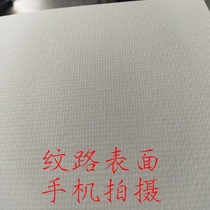 纹路表面
手机拍摄